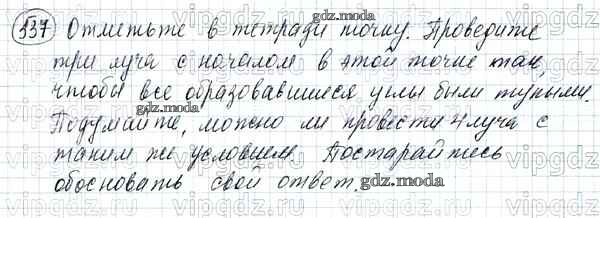 537 Отметьте в тетради точку. Проведите
три луча с началом в этой точке так,
чтобы все образовавшиеся углы были тупыми.
Подумайте, можно ли провести 4 луча с
таким же условием. Постарайтесь
обосновать свой ответ.
gdz.moda
gdz.moda
gdz.moda
gdz.moda
gdz.moda
gdz.moda
vipgdz
vipgdz
vipgdz
vipgdz